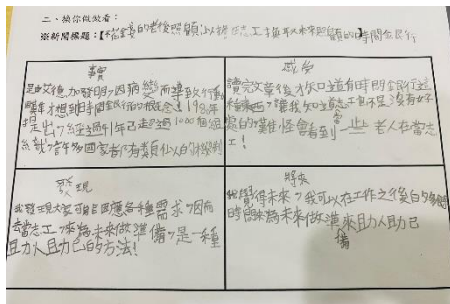 二、換你做做看:
※新聞標題:【 的老後照顧以 志工換取未來照顧的時間銀行】
事實
是由艾德加發明,因病 而導致行動
才想到時間銀行的概念,1980年
提出,經過 年已 過1000個組
織 ,許多國家都有類似的 制
感受
讀完文章後才知道有時間銀行這
種東西,讓我知道志工也不是沒有好
處的,難怪會看到常一些老人在當志
工!
發現
我發現大家可能因應各種需求,因而
去當志工,來為未來做準備,是一種
助人助己的方法!
將來
我覺得未來,我可以在工作之後的
時間來為未來做準備來助人助己